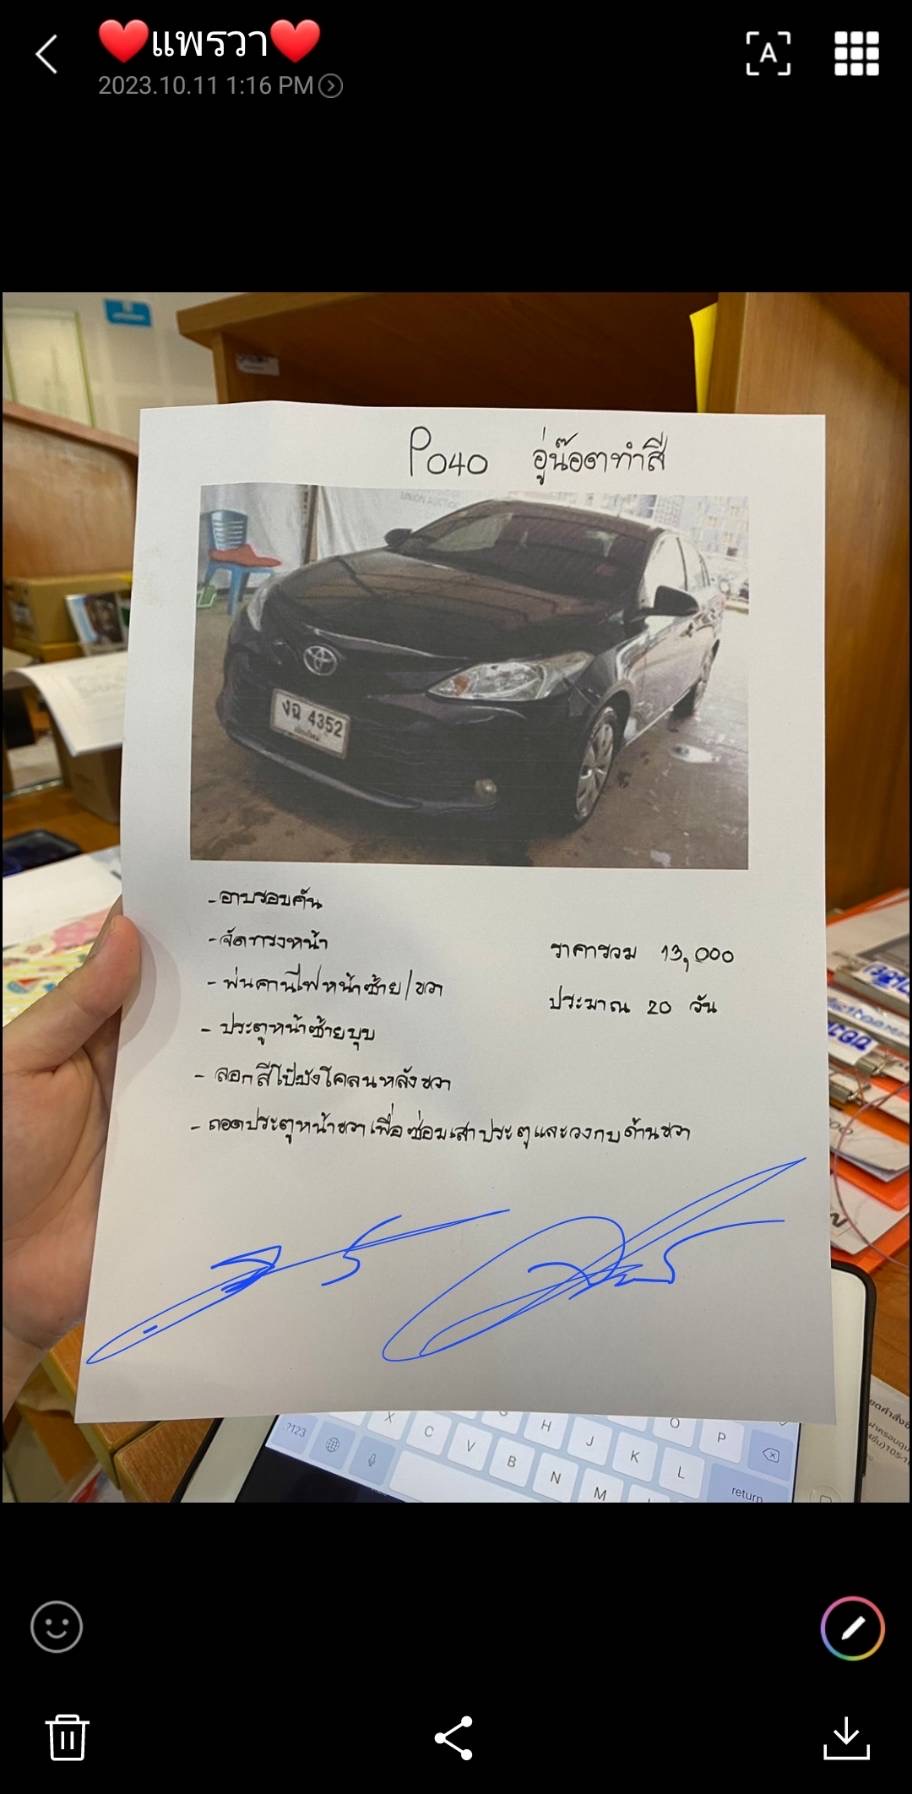 ❤️แพรวา❤️
2023.10.11 1:16 PM
A
P040 อู่น๊อตทำสี
UNION AUCTION
งฉ 4352
- อาบรอบคัน
- จัดทรงหน้า
- พ่นคานไฟหน้าซ้าย/ขวา
- ประตูหน้าซ้ายบุบ
- ลอกสีโป๊บังโคลนหลังขวา
- ถอดประตูหน้าขวาเพื่อซ่อมเสาประตูและวงกบด้านขวา
ราคารวม 13,000
ประมาณ 20 วัน
.?123 X C V B N M
H J K L
O P
return